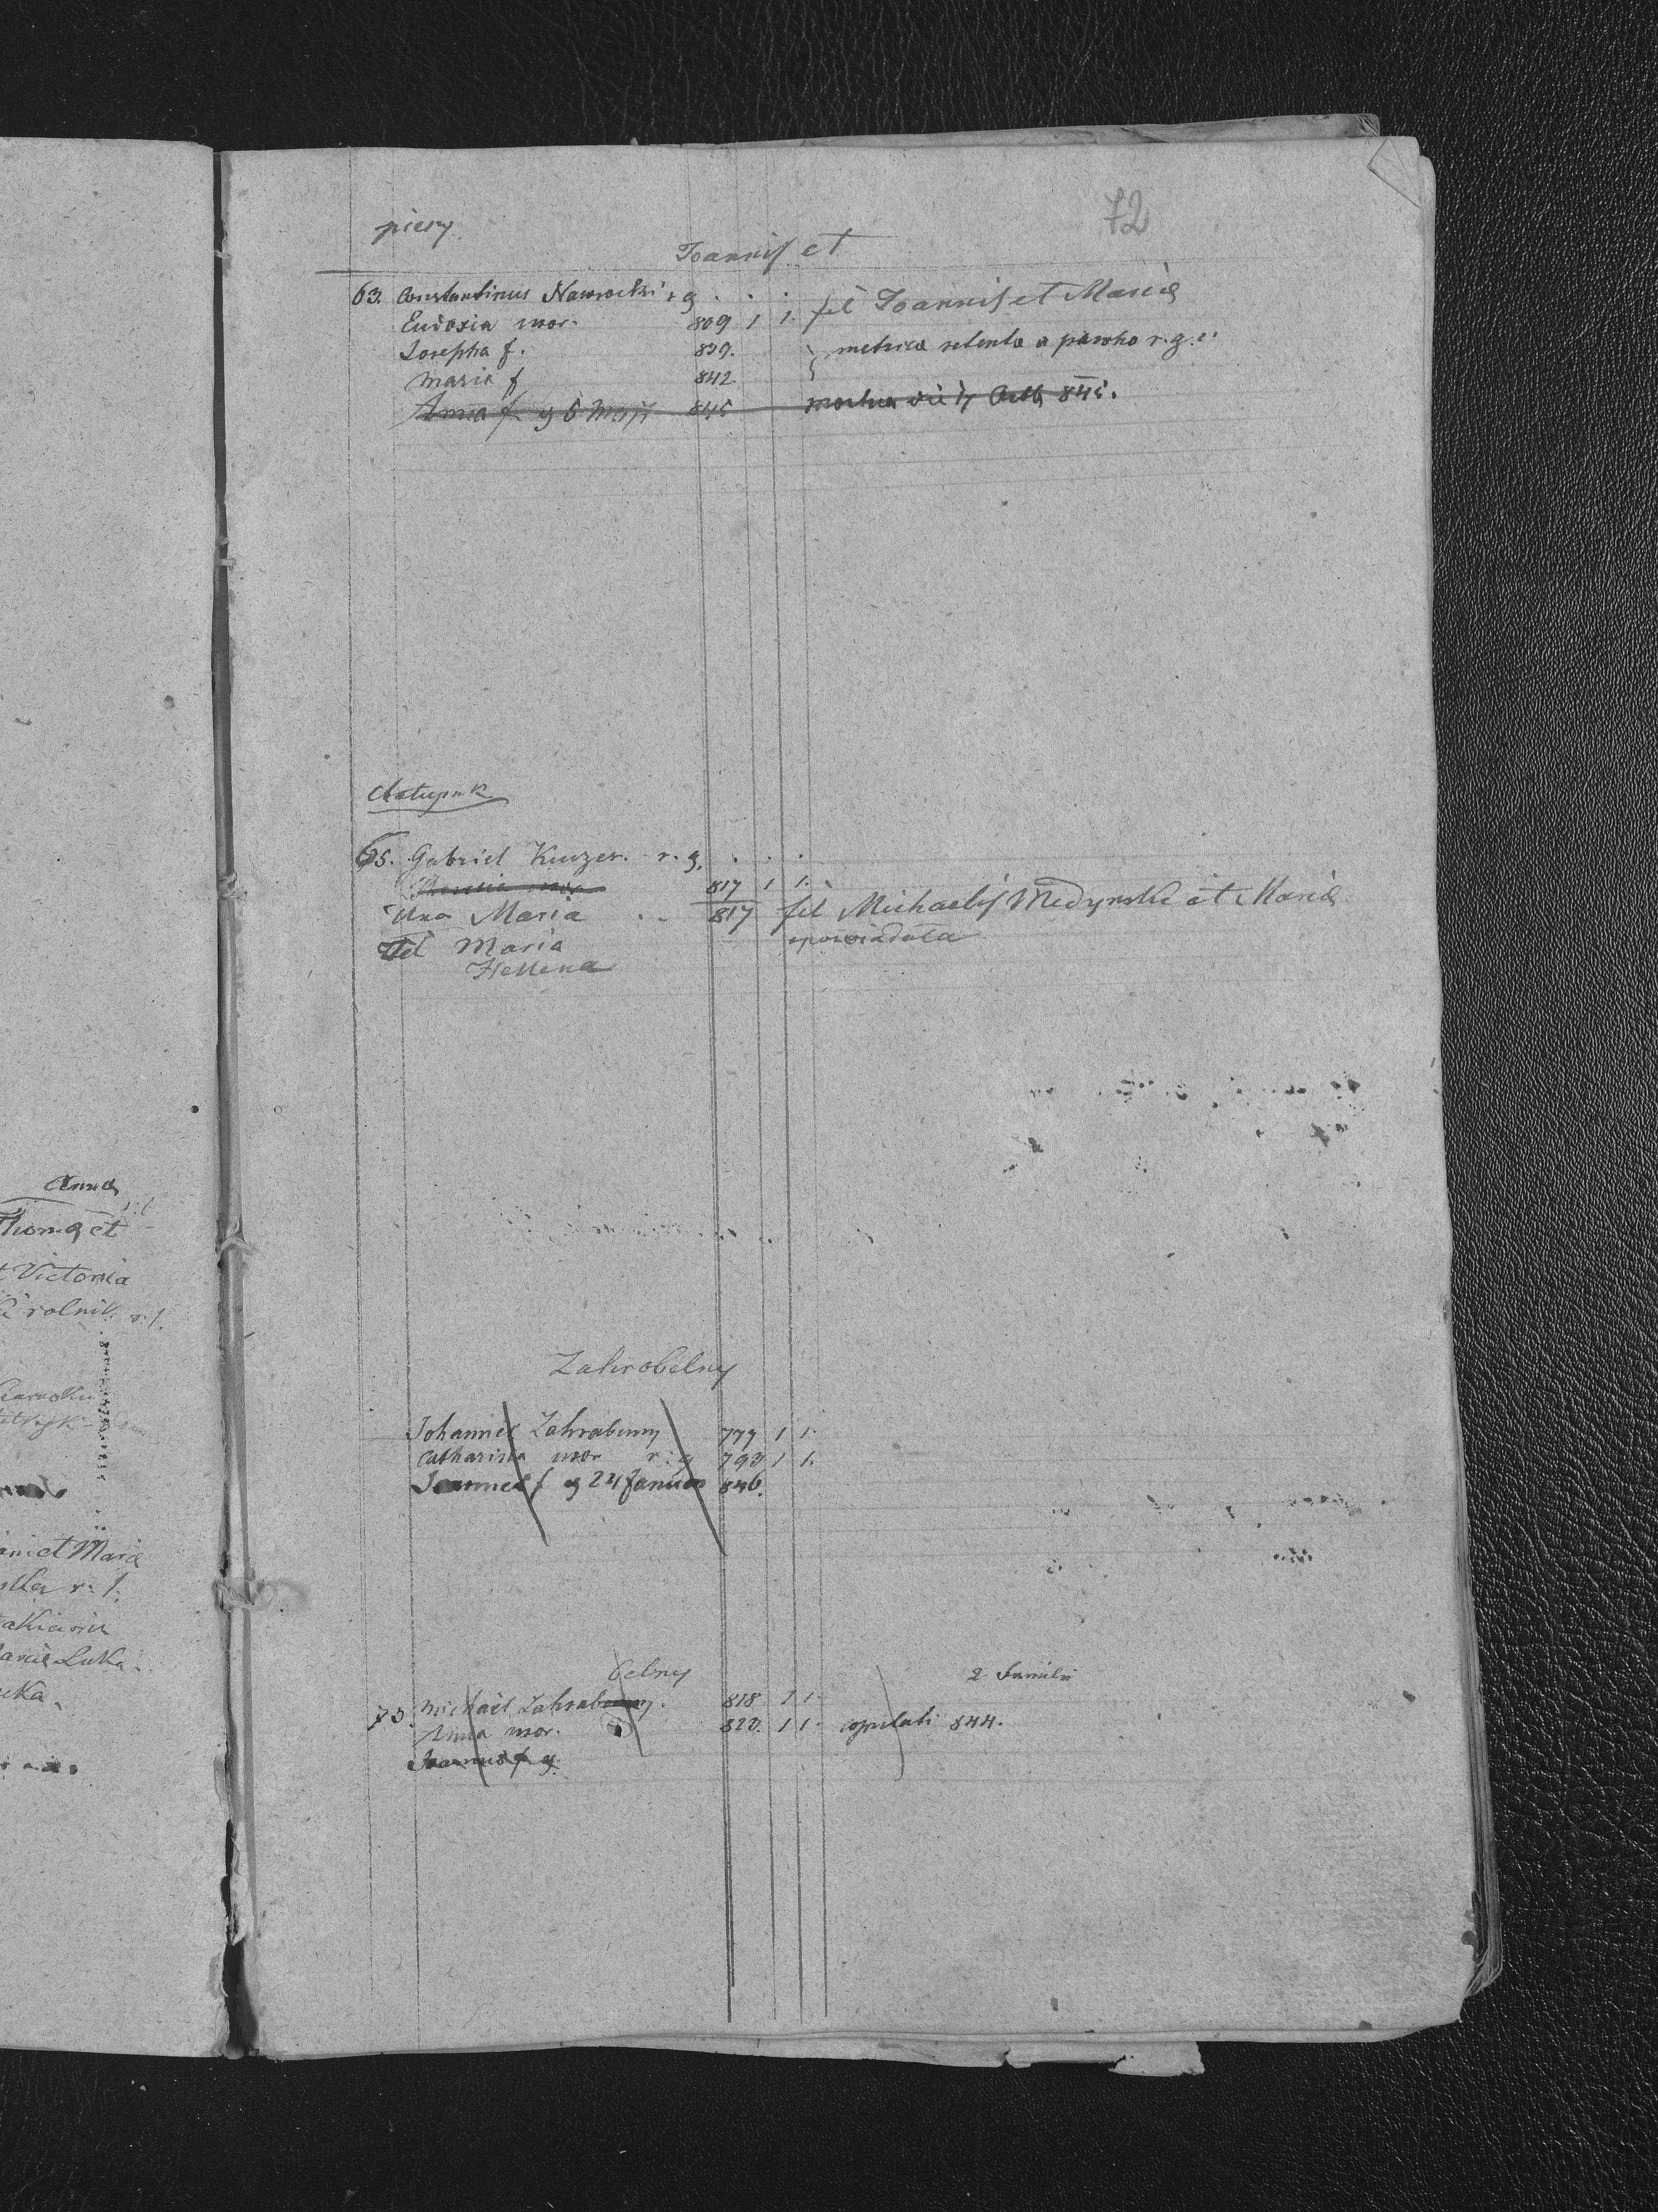 72
piery
Joannis et
63. Constantinus Nawrocki r g . . . fil Joannis et Mariæ
Eudoxia uxor. 809 1 1.
Josepha f. 839. metrica retenta a parocho r. g. c.
Maria f 842.
Anna f g 6 Maji 845 mortua die 17 Octb 845.
65. Gabriel Kuczer. r. g. . . .
817 1 1.
Una Maria . . 817 fil Michaelis Medynski et Mariæ
fil Maria opowiadała
Hellena
Zahrobelny
Johannes Zahrabuny 777 1 1.
Catharina uxor r. g 790 1 1.
Joannes f g 24 Januar 846.
belny
2 Familii
73. Michael Zahrabuny. 818 1 1.
Anna uxor. 820. 1 1. copulati 844.
Joannes f g.
Anna
Thomæ et
Victoria
rolnik r. l.
et Mariæ
Luka.